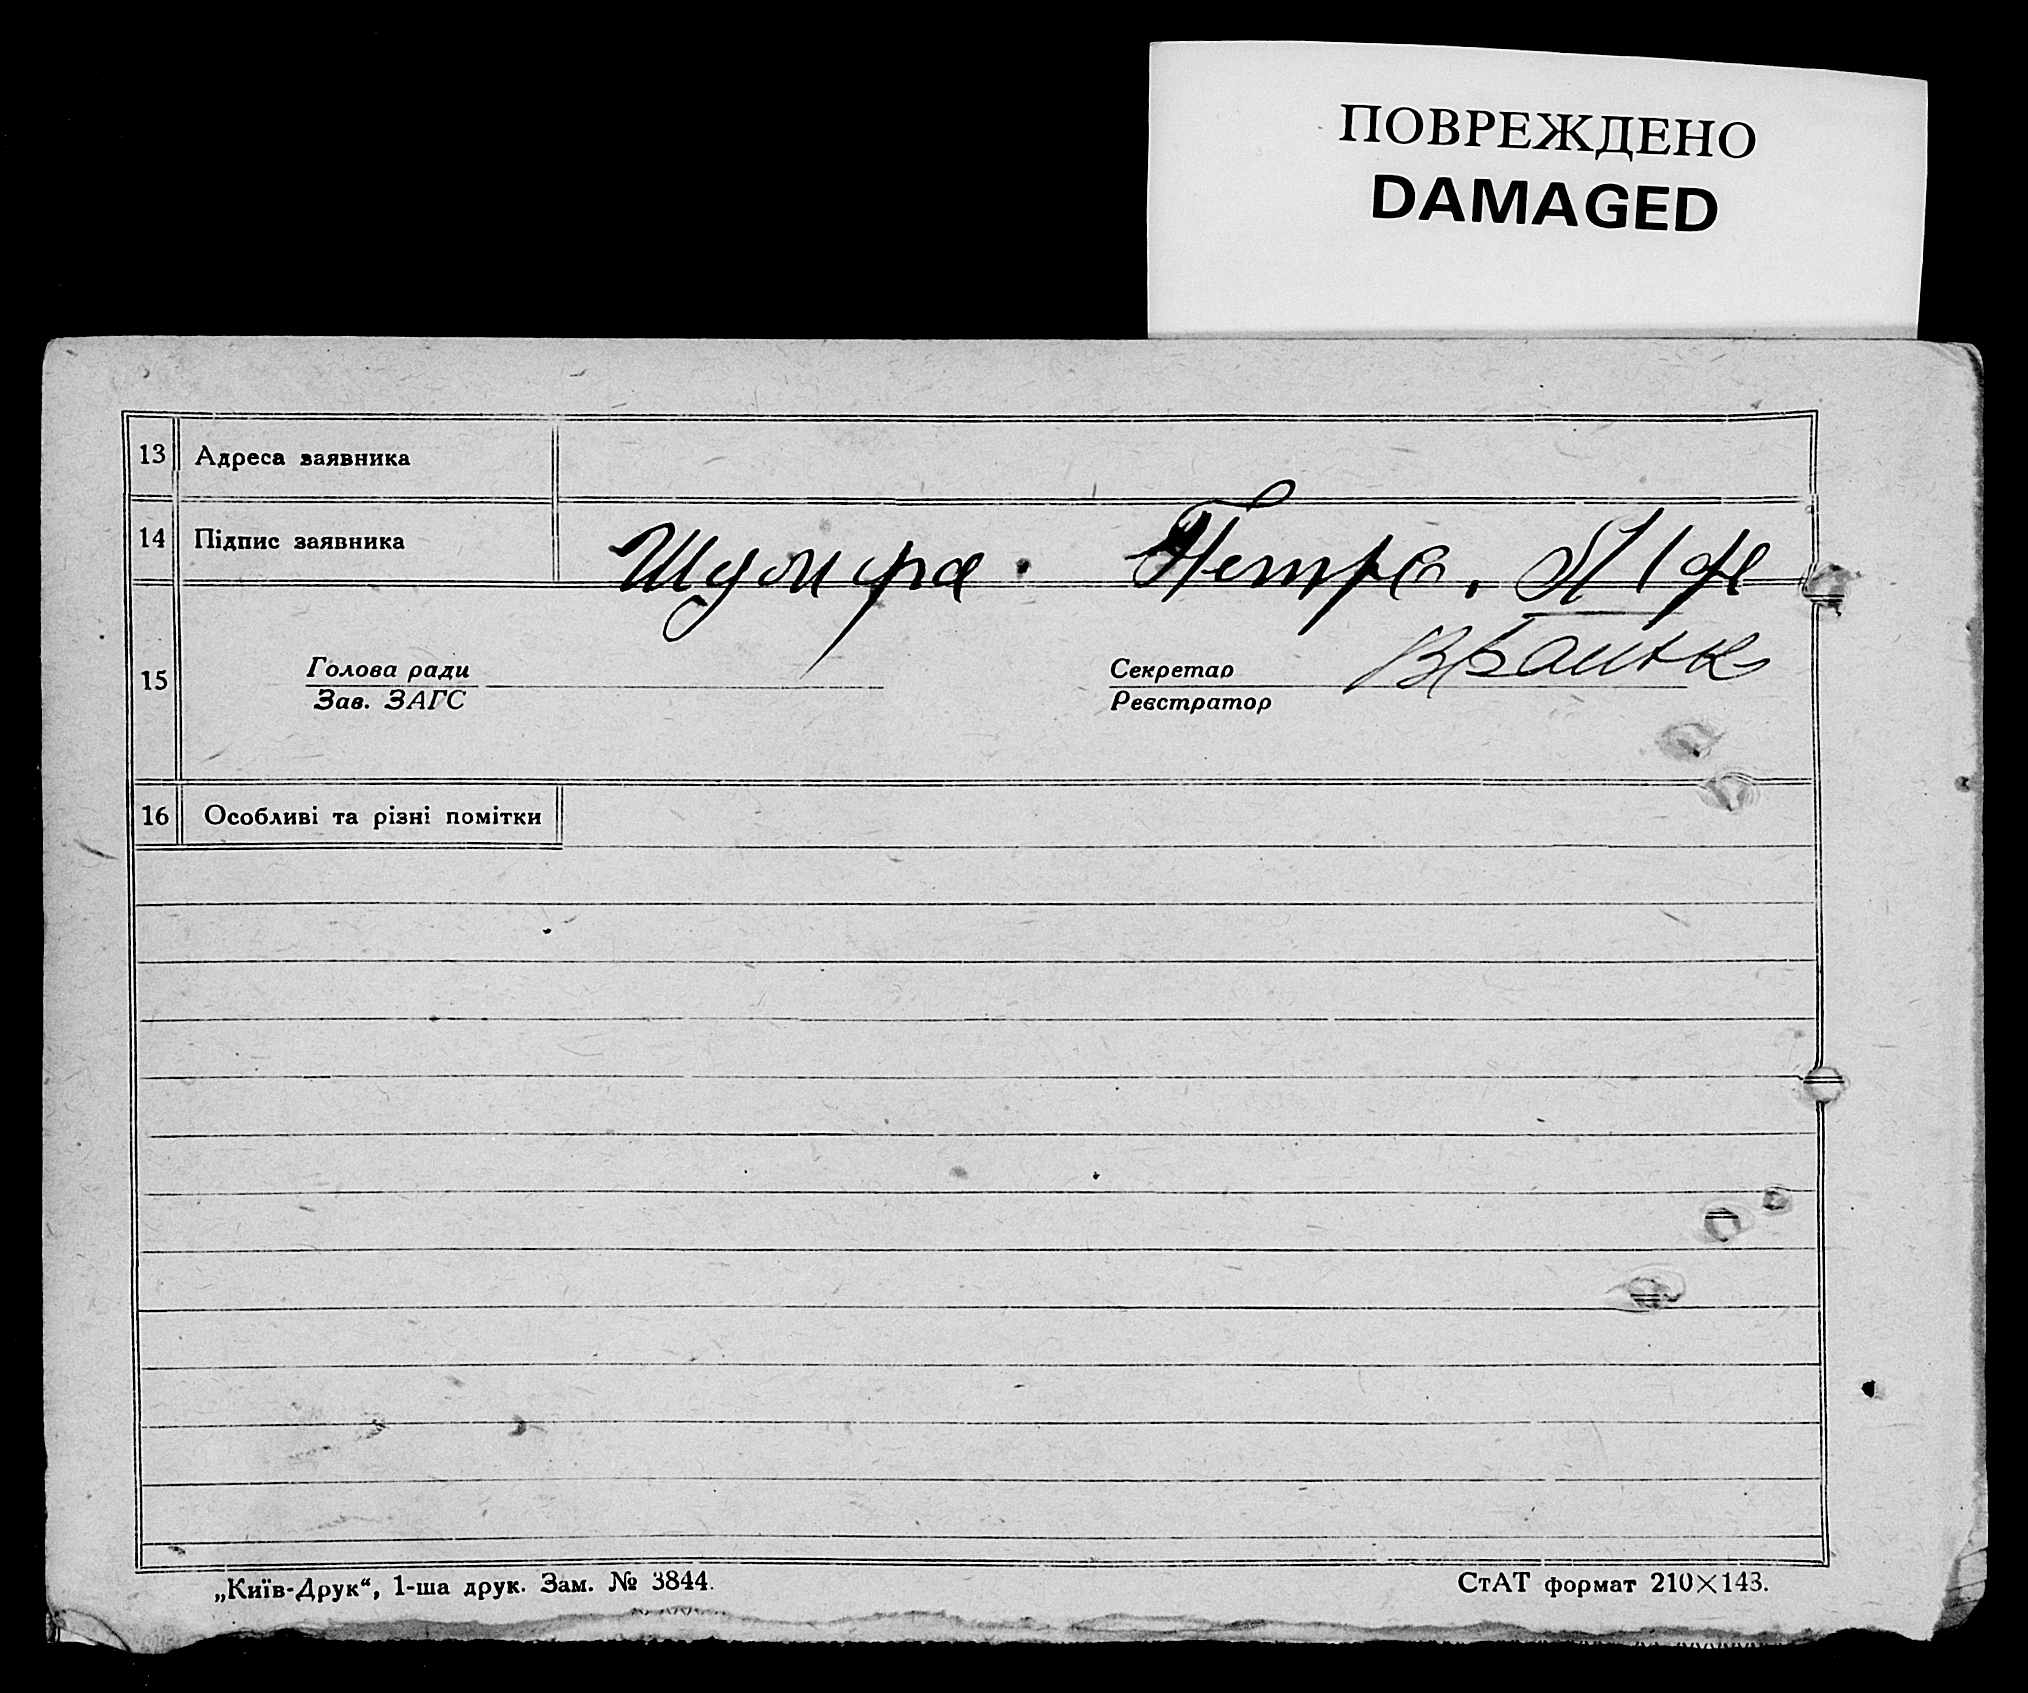 ПОВРЕЖДЕНО
DAMAGED
13 Адреса заявника
14 Підпис заявника Шумира. Петро,
15 Голова ради Секретар
Зав. ЗАГС Реєстратор
16 Особливі та різні помітки
„Київ-Друк“, 1-ша друк. Зам. № 3844. СтАТ формат 210×143.